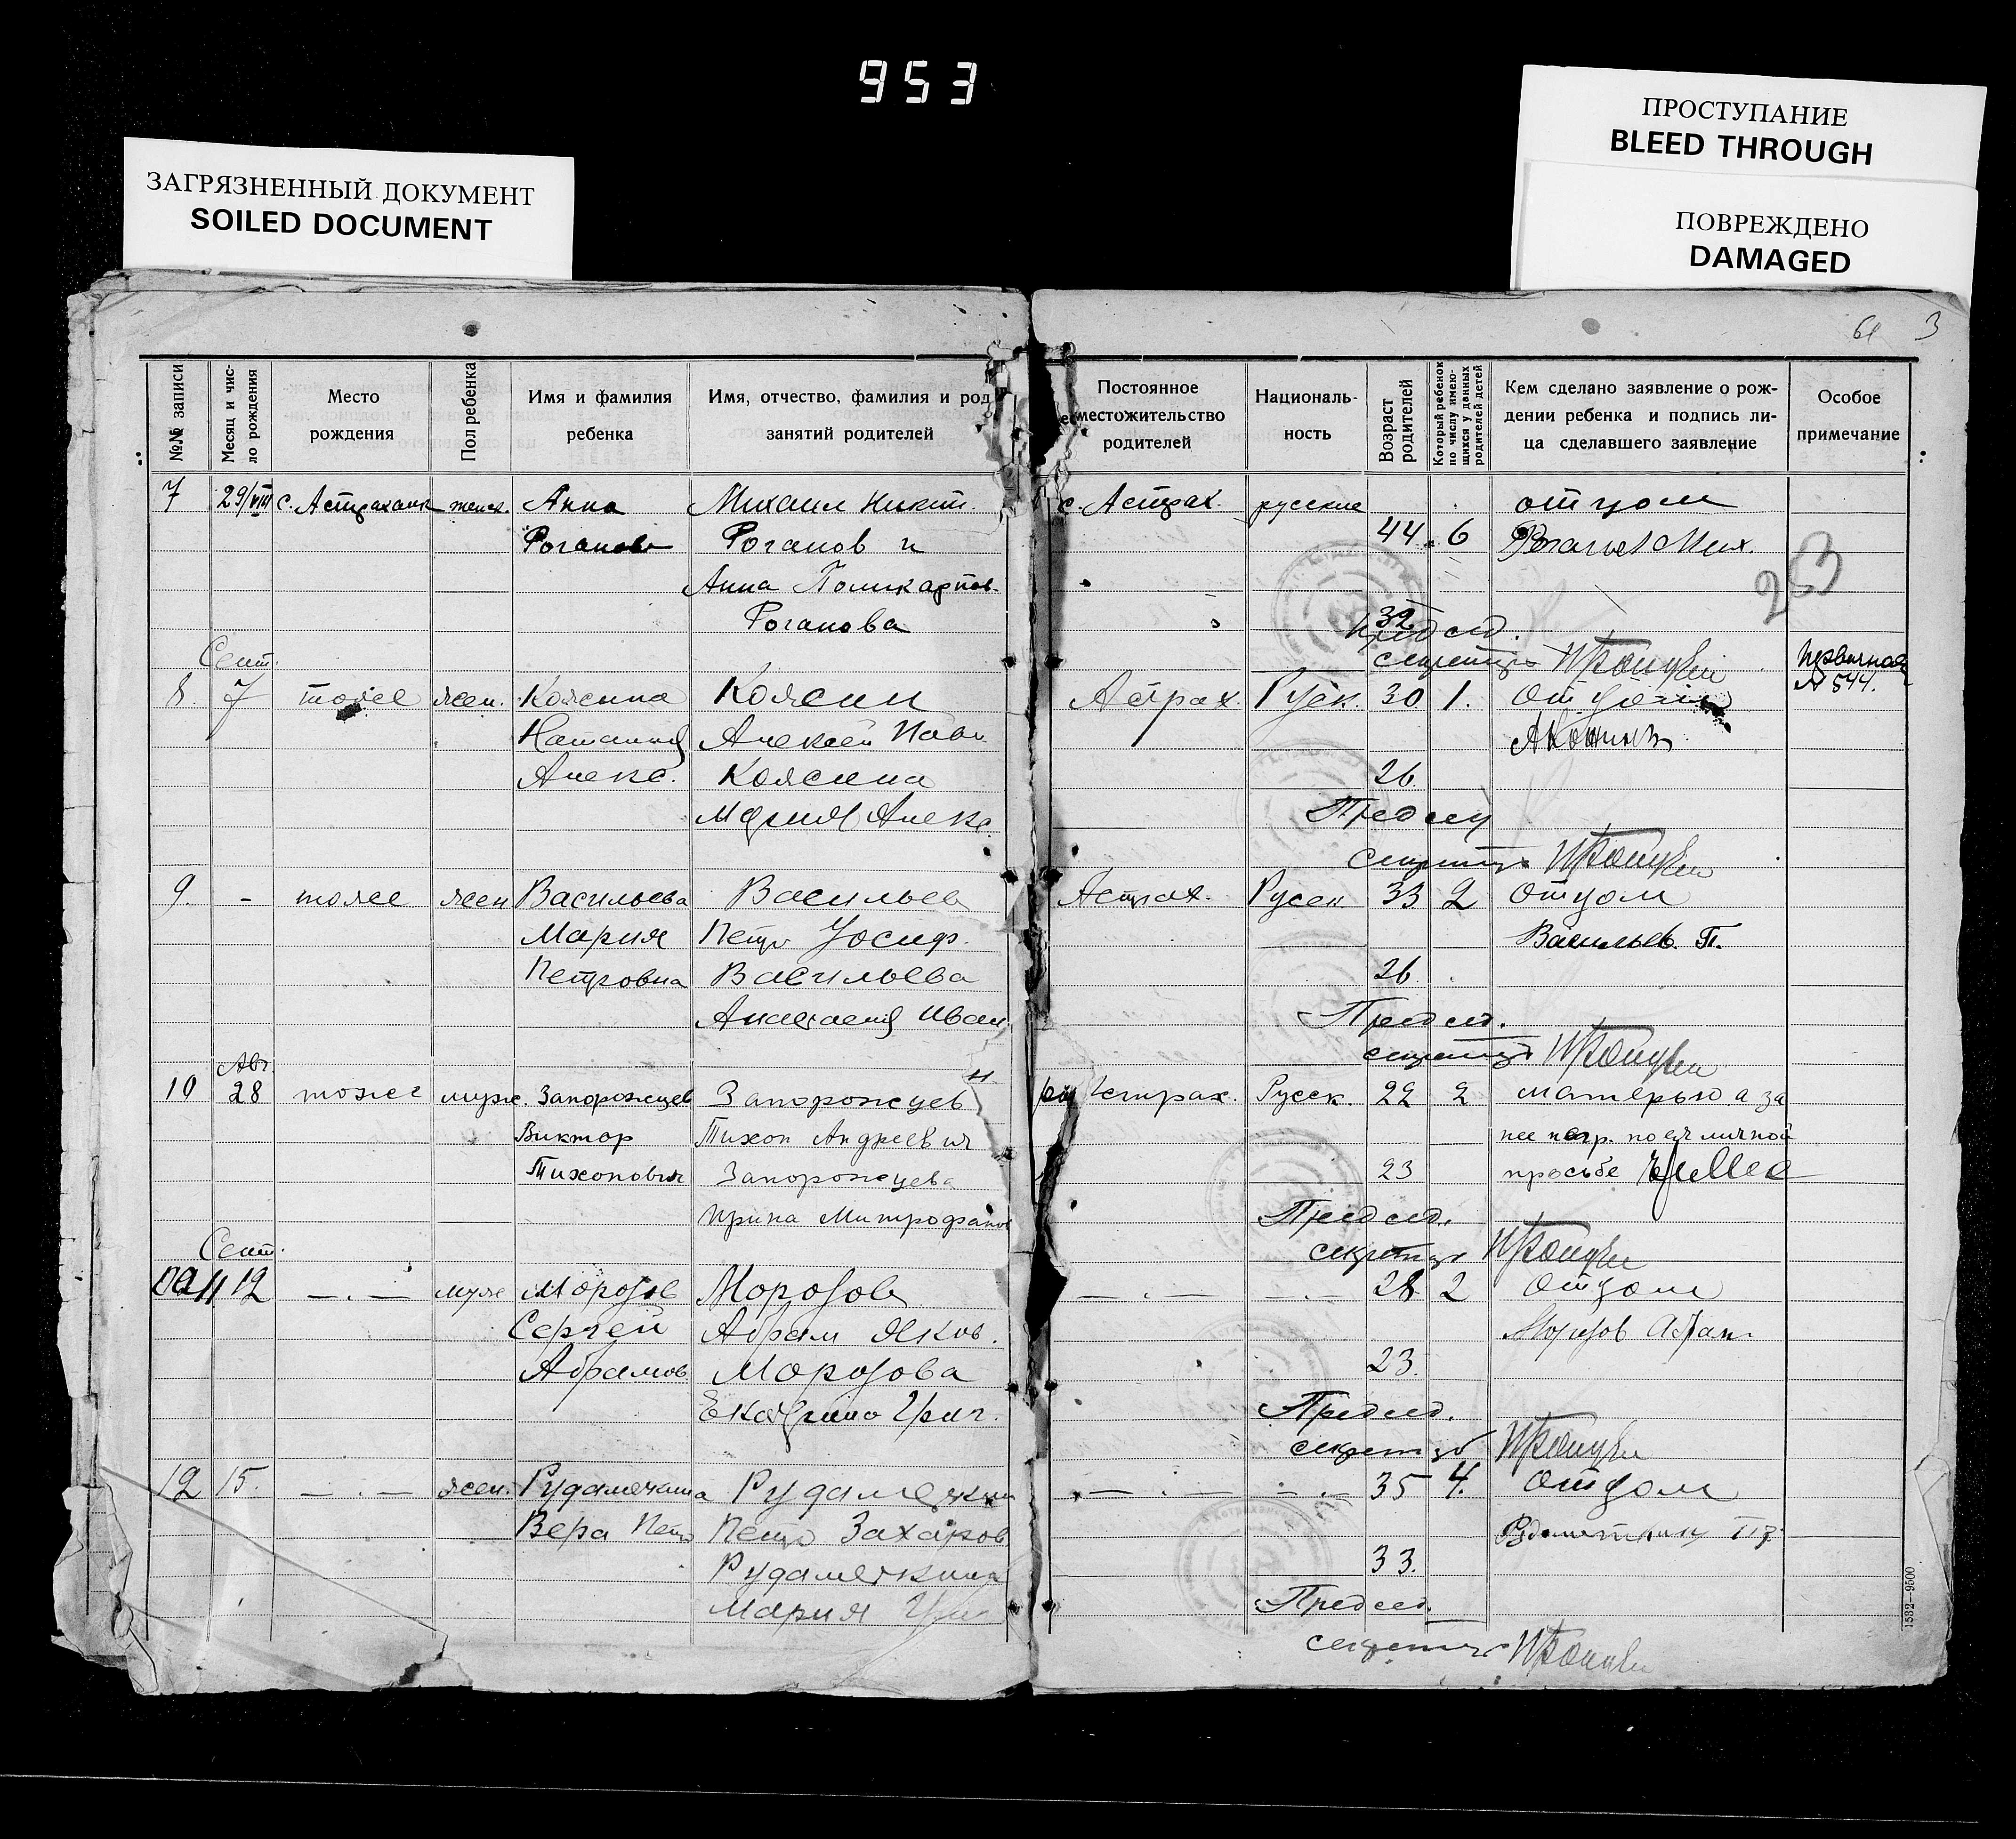 953
ЗАГРЯЗНЕННЫЙ ДОКУМЕНТ
SOILED DOCUMENT
ПРОСТУПАНИЕ
BLEED THROUGH
ПОВРЕЖДЕНО
DAMAGED
3
№№ записи
Месяц и число рождения
Место рождения
Пол ребенка
Имя и фамилия ребенка
Имя, отчество, фамилия и род занятий родителей
Постоянное местожительство родителей
Националь-ность
Возраст родителей
Который ребенок по числу имею-щихся у данных родителей детей
Кем сделано заявление о рож-дении ребенка и подпись ли-ца сделавшего заявление
Особое примечание
7 29/VIII с. Астраханк женск. Анна Михаил Никит. с. Астрах. русские отцом
Роганова Роганов и 44 6 Мих.
Анна Поликарпов. 253
Роганова 32
Председ.
Сент. секретарь Первичная
8. 7 тоже жен. Коясина Коясин Астрах. Руск. 30 1. отцом № 544.
Наталия Алексей Павл
Алекс. Коясина 26.
Мария Алекс. Председ
секретарь
9. - тоже жен Васильева Васильев Астрах. Русск 33 2 отцом
Мария Петр Иосиф. Васильев. П.
Петровна Васильева 26.
Анастасия Иван. Председ.
Авг секретарь
10 28 тоже муж. Запорожцев Запорожцев Астрах. Русск. 22 2 матерью а за
Виктор Тихон Андреевич нее негр. по ея личной
Тихонович Запорожцева 23 просьбе
Ирина Митрофанов Председ.
Сент. секретарь
11 12 — . — муж Морозов Морозов — . — — . — 28 2 отцом
Сергей Абрам Яков. Морозов Абрам.
Абрамов. Морозова 23.
Екатерина Григ. Председ.
секретарь
12 15. — . — жен. Рудаметкина Рудаметкин — . — — . — 35 4. отцом
Вера Петр Петр Захаров Рудаметкин
Рудаметкина 33.
Мария Председ.
секретарь
1532—9500